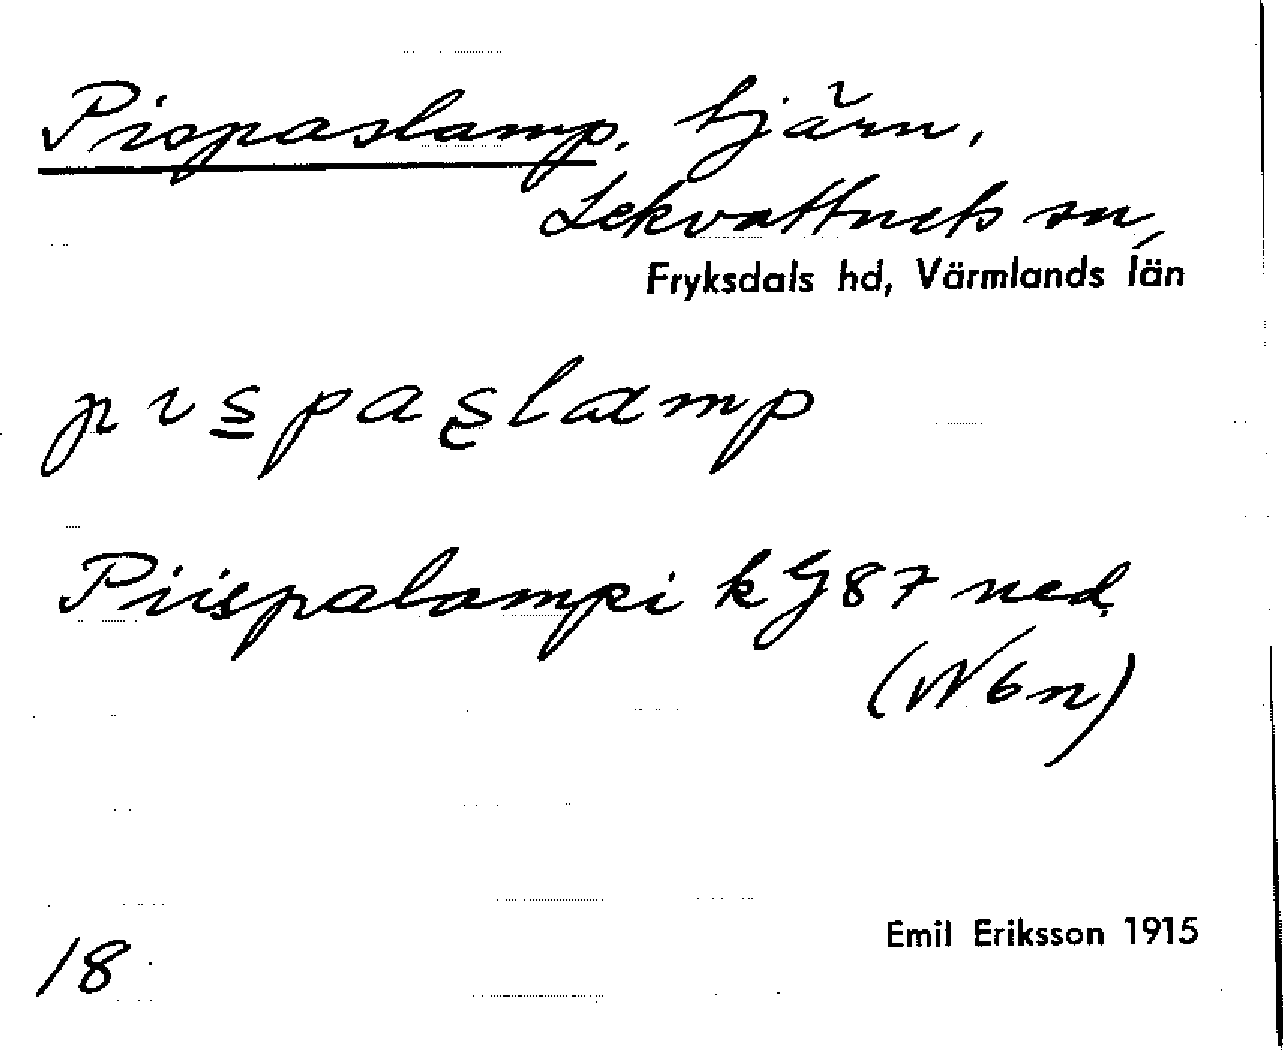 Pispaslamp. tjärn,
Lekvattnets sn,
Fryksdals hd, Värmlands län
pɩs̲paʂlamp
Piispalampi k G 87 ned.
(Wbn)
Emil Eriksson 1915
18